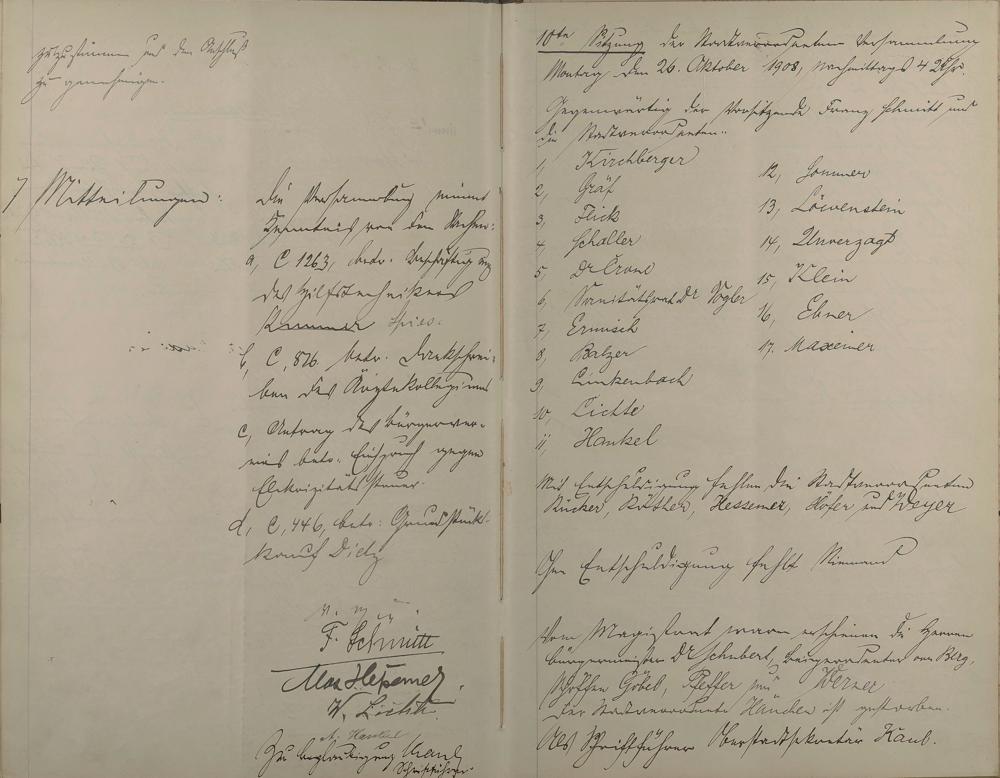 zuzustimmen und den Anschluß
zu genehmigen.
7 Mitteilungen:
Die Versammlung nimmt
Kenntnis von den Sachen:
a, C 1263, betr. Beschäftigung
des Hilfstechnikers
Kummer Spies.
b, C, 876. betr. Dankschrei-
ben des Ärztekollegiums
c, Antrag des Bürgerver-
eins betr. Einspruch gegen
Elektrizitätssteuer.
d, C, 446, betr: Grundstücks-
kauf Dietz
F. Schmitt
Max Hessemer.
W. Lichte.
A. Hankel
Zu Beglaubigung Kaul
Schriftführer.
10te Sitzung der Stadtverordneten Versammlung
Montag den 26. Oktober 1908, Nachmittags 4 Uhr.
Gegenwärtig der Vorsitzende Franz Schmitt und
die Stadtverordneten:
1, Kirchberger
2, Gräf
3, Flick
4, Schaller
5, Dr Crone
6, Sanitätsrat Dr Vogler
7, Ermisch
8, Balzer
9, Linkenbach
10, Lichte
11, Hankel
12, Sommer
13, Löwenstein
14, Unverzagt
15, Klein
16, Ebner
17. Maxeiner
Mit Entschuldigung fehlen die Stadtverordneten
Rücker, Käther, Hessemer, Höfer und Weyer
Ohne Entschuldigung fehlt Niemand
Vom Magistrat waren erschienen die Herren
Bürgermeister Dr Schubert, Beigeordneter von Berg,
Schöffen Göbel, Pfeffer und Werner.
Der Stadtverordnete Handel ist gestorben.
Als Schriftführer Oberstadtsekretär Kaul.